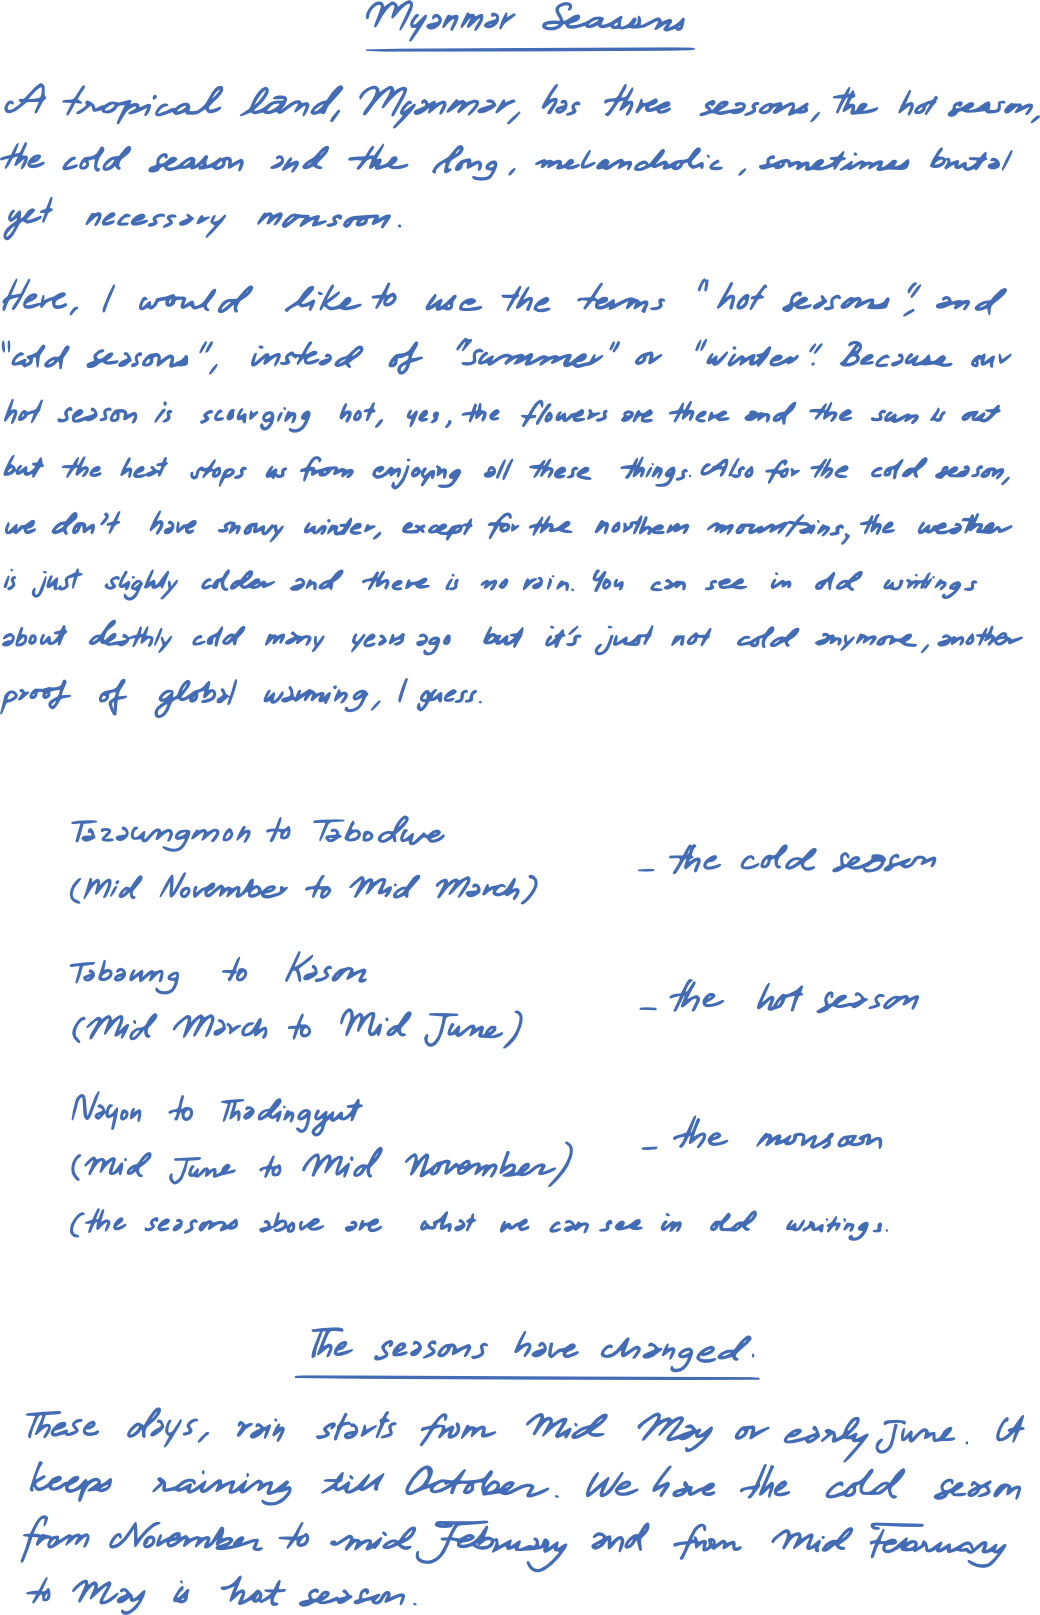 Myanmar Seasons
A tropical land, Myanmar, has three seasons, the hot season,
the cold season and the long, melancholic, sometimes brutal
yet necessary monsoon.
Here, I would like to use the terms "hot seasons", and
"cold seasons", instead of "summer" or "winter". Because our
hot season is scourging hot, yes, the flowers are there and the sun is out
but the heat stops us from enjoying all these things. Also for the cold season,
we don't have snowy winter, except for the northern mountains, the weather
is just slightly colder and there is no rain. You can see in old writings
about deathly cold many years ago but it's just not cold anymore, another
proof of global warming, I guess.
Tazaungmon to Tabodwe
(Mid November to Mid March)
- the cold season
Tabaung to Kason
(Mid March to Mid June)
- the hot season
Nayon to Thadingyut
(Mid June to Mid November)
- the monsoon
(the seasons above are what we can see in old writings.
The seasons have changed.
These days, rain starts from Mid May or early June. It
keeps raining till October. We have the cold season
from November to mid February and from Mid February
to May is hot season.